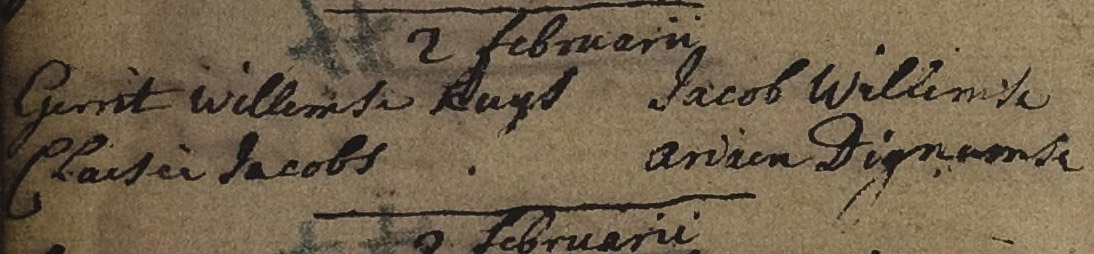 2 februarii
Gerrit Willemse Kuyt Jacob Willemse
Claesie Jacobs . Ariaen Dignumse
2 februarii